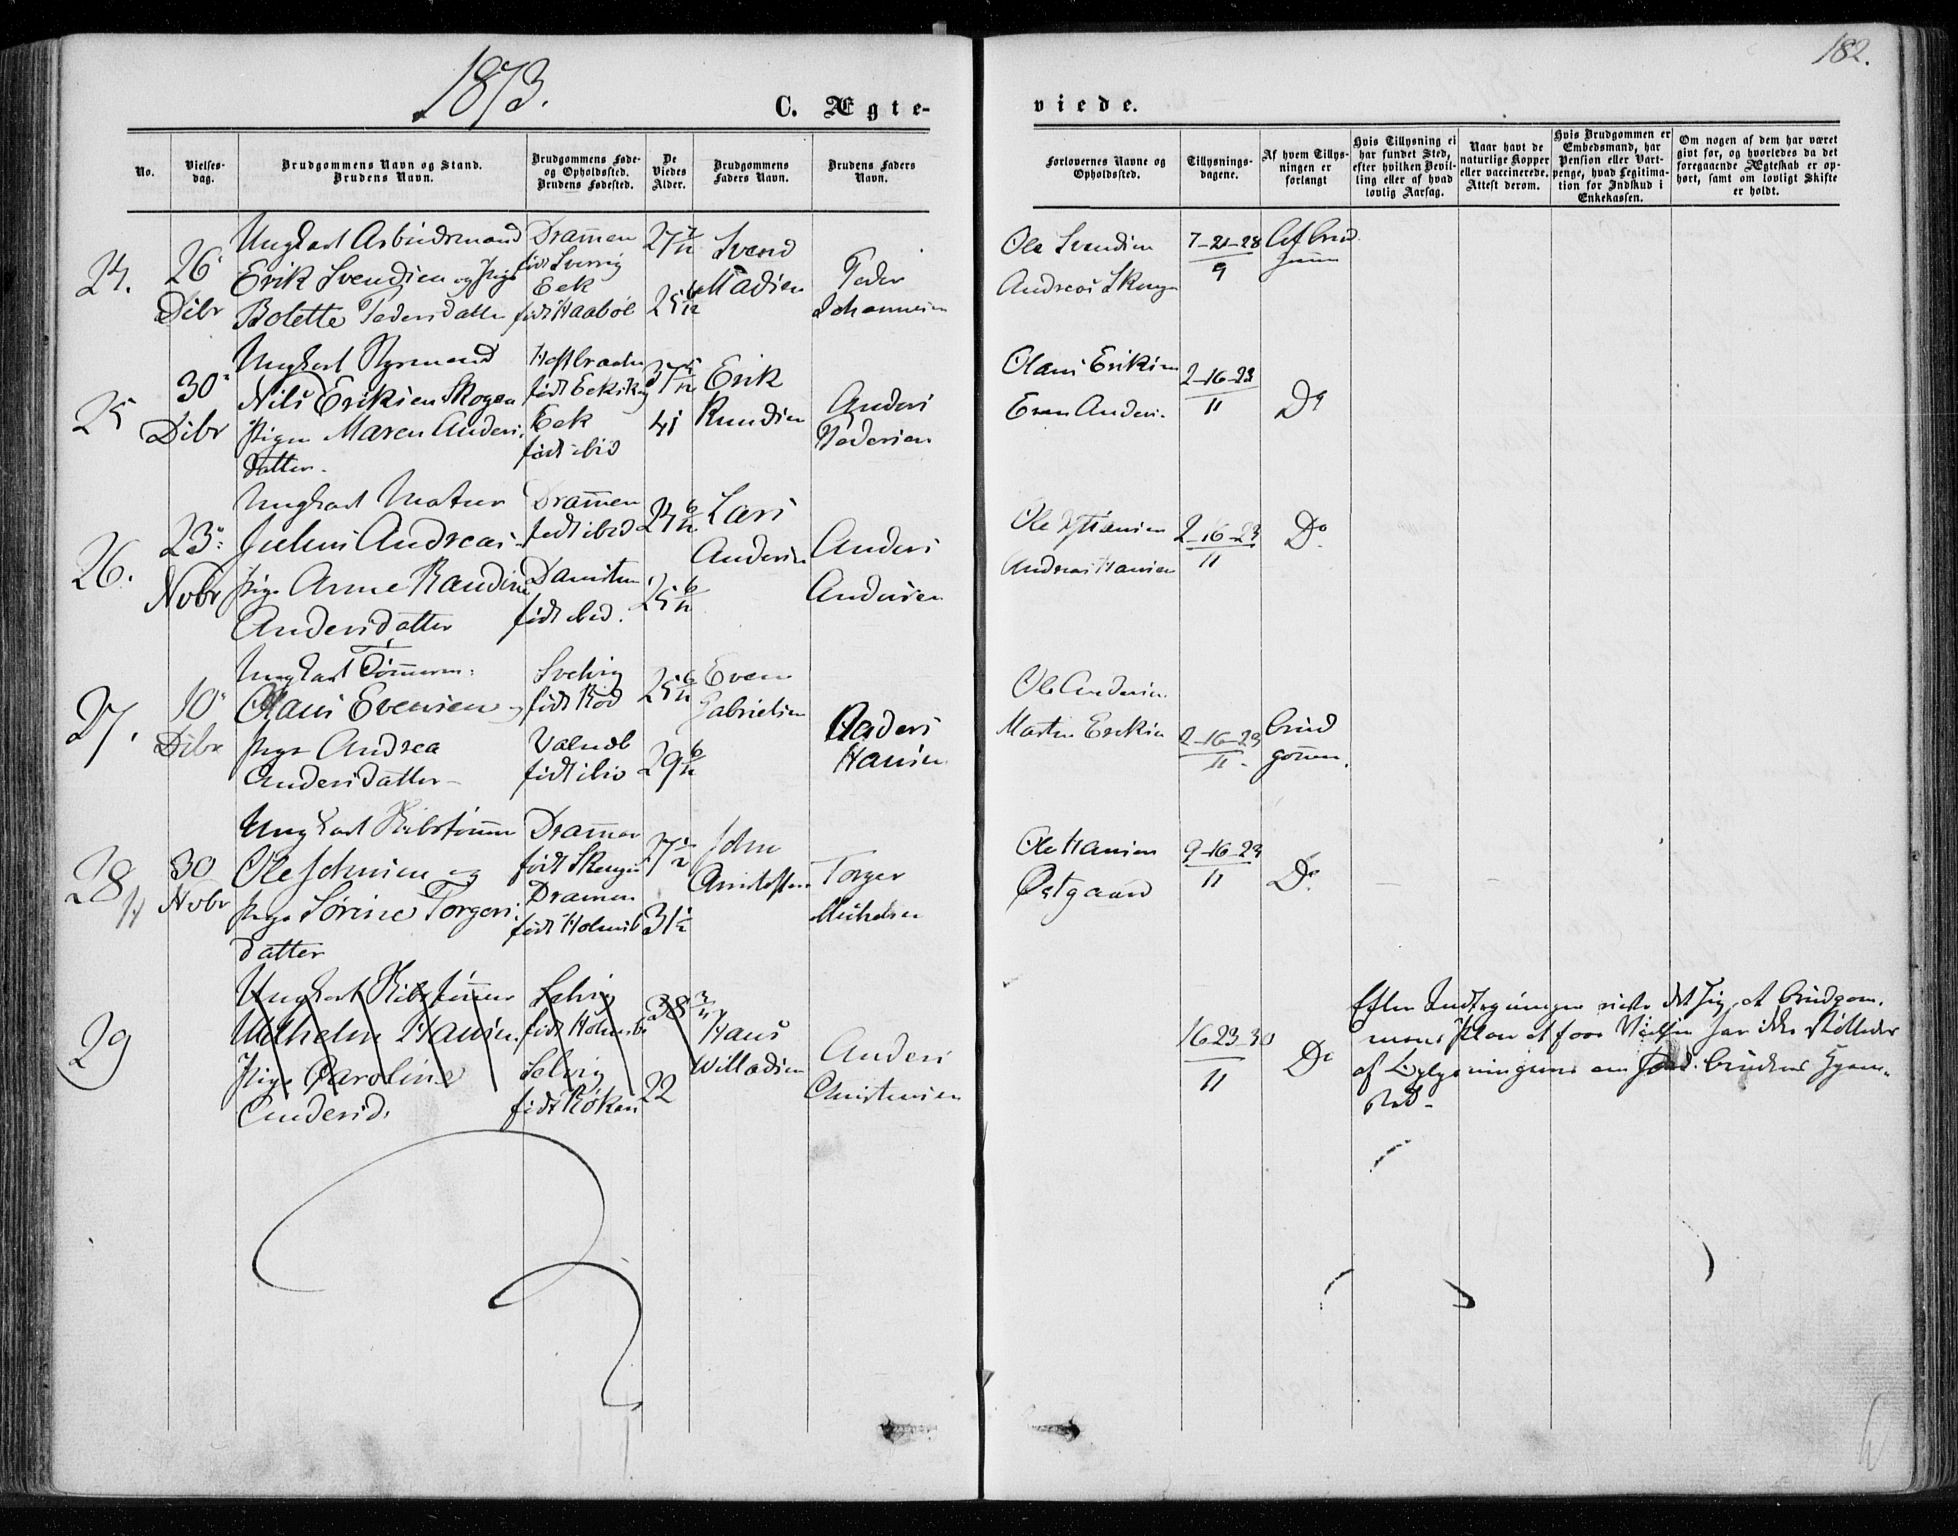 1873.
182.
C. Ægte-
viede.
No.
Vielses-
dag.
Brudgommens Navn og Stand.
Brudens Navn.
Brudgommens Føde-
og Opholdssted.
Brudens Fødested.
De
Viedes
Alder.
Brudgommens
Faders Navn.
Brudens Faders
Navn.
Forlovernes Navne og
Opholdssted.
Tillysnings-
dagene.
Af hvem Tillys-
ningen er
forlangt
Hvis Tillysning ei
har fundet Sted,
efter hvilken Bevil-
ling eller af hvad
lovlig Aarsag.
Naar havt de
naturlige Kopper
eller vaccinerede.
Attest derom.
Hvis Brudgommen er
Embedsmand, har
Pension eller Vart-
penge, hvad Legitima-
tion for Indskud i
Enkekassen.
Om nogen af dem har været
gift før, og hvorledes da det
foregaaende Ægteskab er op-
hørt, samt om lovligt Skifte
er holdt.
24.
26
Dibr
Ungkarl Arbeidsmand
Erik Svendsen og Pige
Bolette Pedersdatter
Dramen
født Sverrig
Eek
født Haabøl
27 7/12
25 6/12
Svend
Madsen
Peder
Johannesen
Ole Svendsen
Andreas Skoug
7-21-28
9
Af brud
gom
25
30
Dibr
Ungkarl Styrmand
Nils Eriksen Skogen
Pigen Maren Anders-
datter.
født Eekvik
Eek
født ibid
37 5/12
41
Erik
Knudsen
Anders
Pedersen
Olaus Eriksen
Even Anders.
2-16-23
11
Do
26.
23
Novbr
Ungkarl Matros
Julius Andreas
pige Anne Randine
Andersdatter
Dramen
født ibid
født ibid.
24 6/12
25 6/12
Lars
Andersen
Anders
Andersen
Ole Hansen
Andreas Hansen
2-16-23
11
Do
27.
10
Dibr
Ungkarl Tømmerm:
Olaus Evensen og
pige Andrea
Andersdatter
Svelvig
født Rød
født ibid
25 6/12
29 6/12
Even
Gabrielsen
Anders
Hansen
Ole Andersen
Martin Eriksen
2-16-23
11
brud
gommen.
28
30
Novbr
Ungkarl Skibstømm
Ole Johnsen og
pige Sørine Torgers-
datter
Dramen
født
Dramen
født Holmsb
27 1/2
31 1/2
John
Christofsen
Torger
Michelsen
Ole Hansen
Østgaard
9-16-23
11
Do
29
Ungkarl Skibstømmer
Wilhelm Hansen.
Pige Caroline
Andersd.
Selvig
født Holmsb
Selvig
født Røken
38 3/4
22
Hans
Willadsen
Anders
Christensen
16-23-30
11
Do
Efter Indtegningen viste det sig, at brudgom-
mens Plan at faae Vielsen før ikke
af Lysningerne om brudens Hjem-
sted.